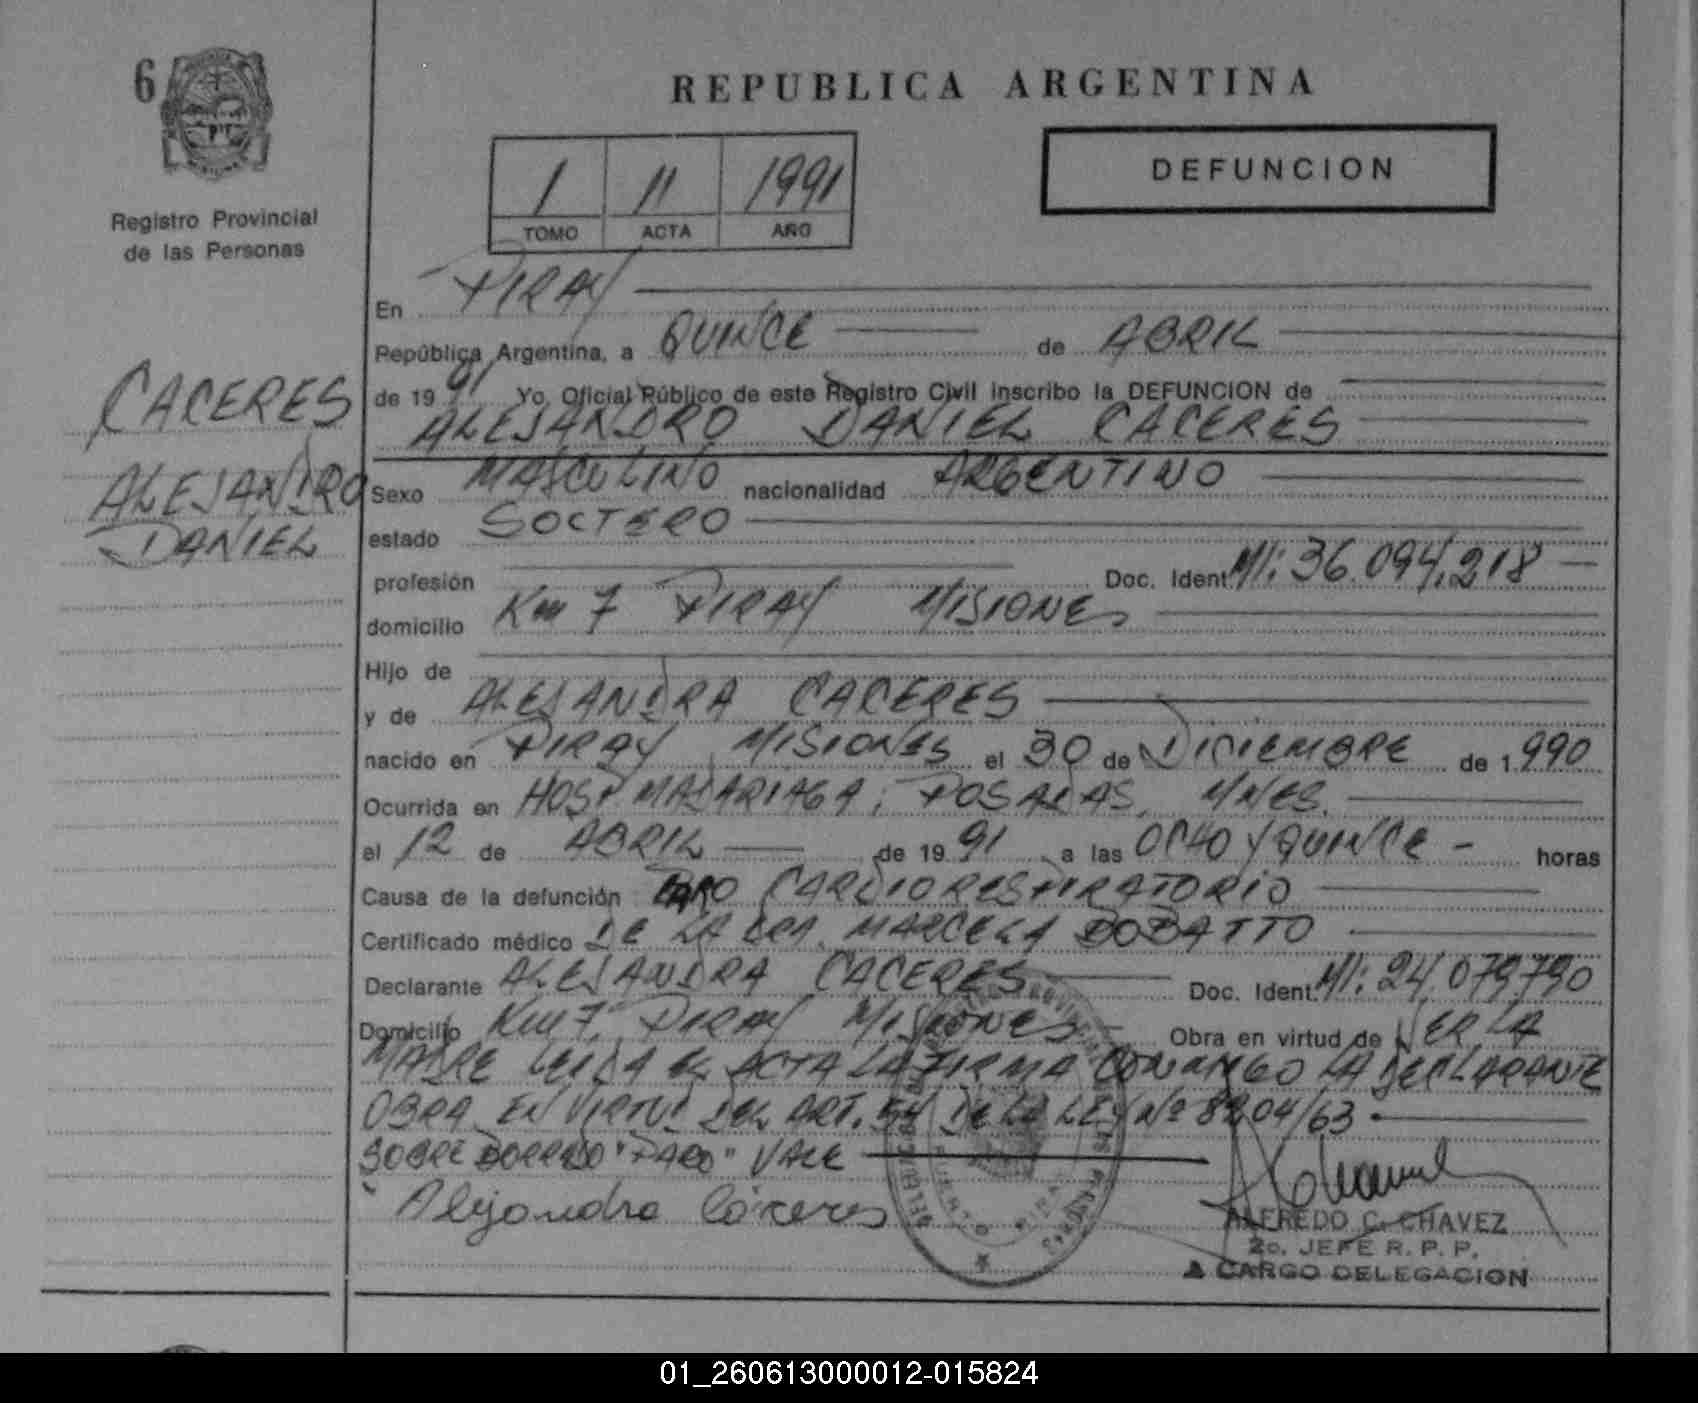 6
Registro Provincial
de las Personas
CACERES
ALEJANDRO
DANIEL
REPUBLICA ARGENTINA
1 11 1991
TOMO ACTA AÑO
DEFUNCION
En PIRAY
República Argentina, a QUINCE de ABRIL
de 19 91 Yo, Oficial Público de este Registro Civil inscribo la DEFUNCION de
ALEJANDRO DANIEL CACERES
Sexo MASCULINO nacionalidad ARGENTINO
estado SOCTERO
profesión Doc. Ident. MI: 36.094.218
domicilio Km 7 PIRAY MISIONES
Hijo de
y de ALEJANDRA CACERES
nacido en PIRAY MISIONES el 30 de DICIEMBRE de 1.990
Ocurrida en HOSP MADARIAGA, POSADAS, MNES.
el 12 de ABRIL de 19 91 a las OCHO Y QUINCE - horas
Causa de la defunción PARO CARDIORESPIRATORIO
Certificado médico DE LA DRA. MARCELA BOBATTO
Declarante ALEJANDRA CACERES Doc. Ident. MI: 24.079.790
Domicilio Km 7, PIRAY MISIONES Obra en virtud de SER LA
MADRE LEIDA EL ACTA LA FIRMA CONMIGO LA DECLARANTE
OBRA EN VIRTUD DEL ART. 54 DE LA LEY Nº 8204/63
SOBRE BORRADO "PARO" VALE
Alejandra Cáceres
ALFREDO C. CHAVEZ
2o. JEFE R. P. P.
A CARGO DELEGACION
01_260613000012-015824